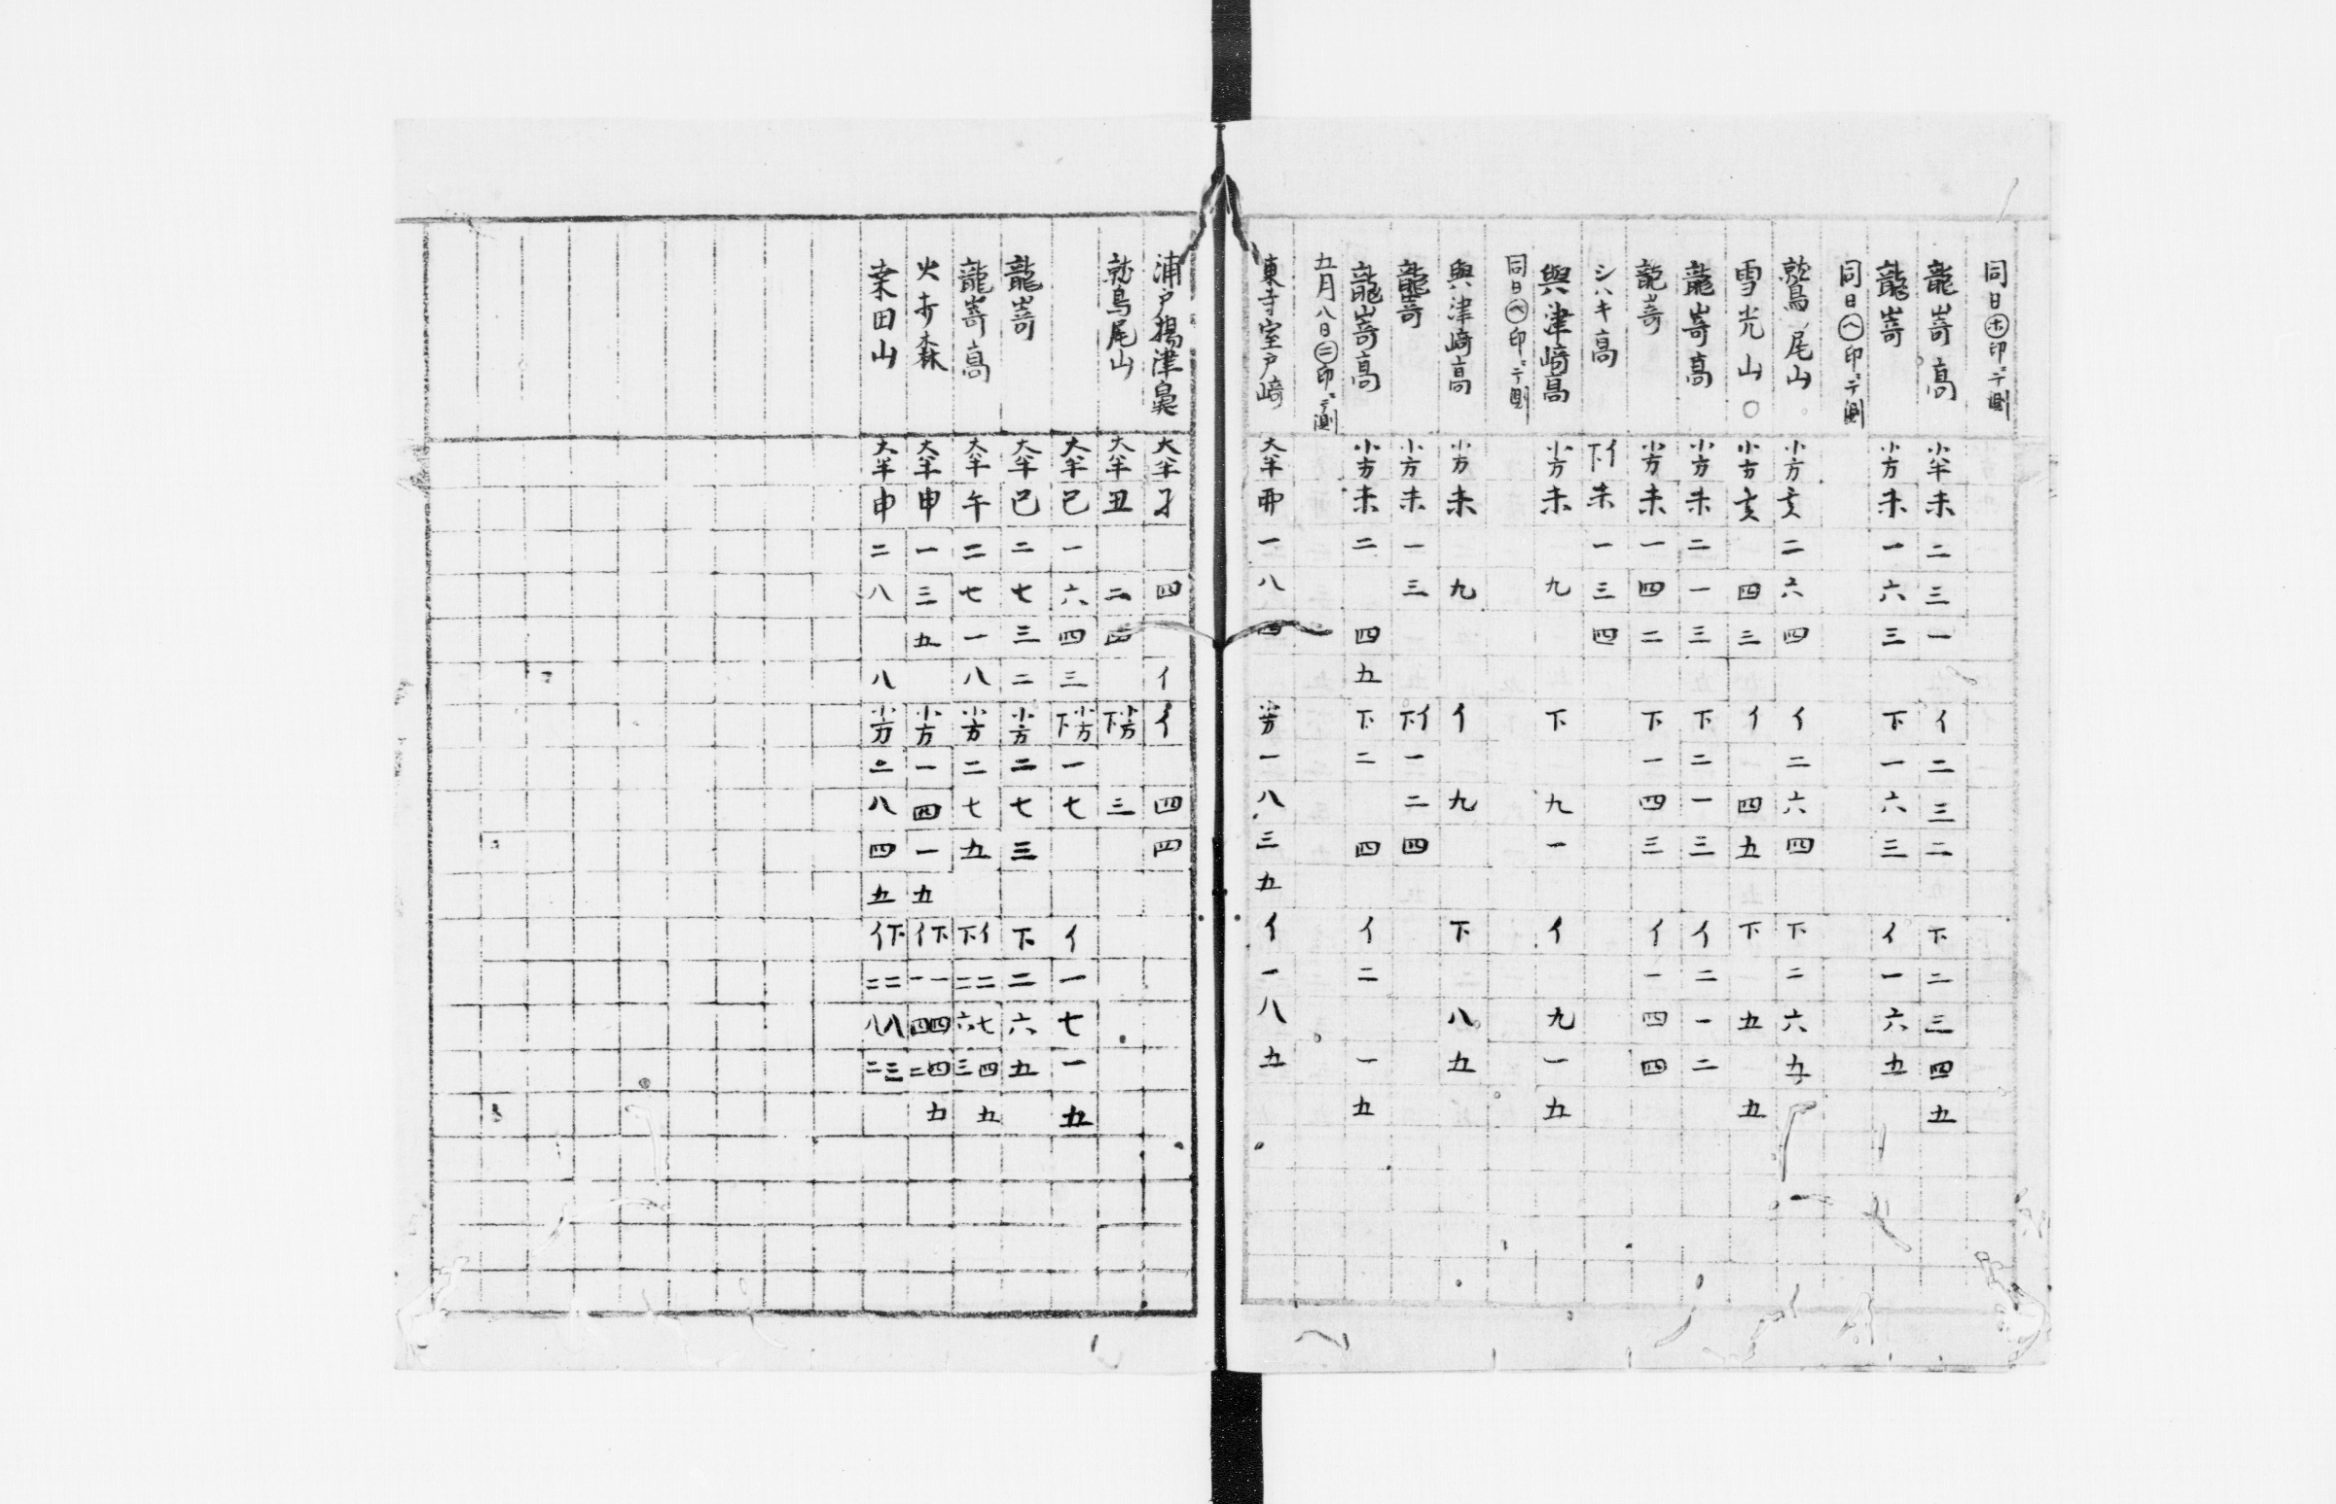 同日㋭印ニテ測
龍嵜高 小半未二三一 イ二三二 下二三四五
龍嵜 小方未一六三 下一六三 イ一六五
同日㋬印ニテ測
鷲尾山 小方亥二六四 イ二六四 下二六五
雪光山〇 小方亥四三 イ四五 下五五
龍嵜高 小方未二一三 下二一三 イ二一二
龍嵜 小方未一四二 下一四三 イ一四四
シハキ高 下イ未一三四
興津﨑高 小方未九 下九一 イ九一五
同日㋬印ニテ測
興津﨑高 小方未九 イ九 下八五
龍嵜 小方未一三 下イ一二四
龍嵜高 小方未二四五 下二四 イ二一五
五月八日㊁印ニテ測
東寺室戸﨑 大半 一八四 小方一八三五 イ一八五
浦戸揚津鼻 大半子四イ イ四四
鷲尾山 大半丑二四 下小方三
大半巳一六四三 下小方一七 イ一七一五
龍嵜 大半巳二七三二 小方二七三 下二六五
龍嵜高 大半午二七一八 小方二七五 イ二七四五 下二六三
火赤森 大半申一三五 小方一四一五 下一四四五 イ一四二
桒田山 大半申二八八 小方二八四五 下二八三 イ二八二